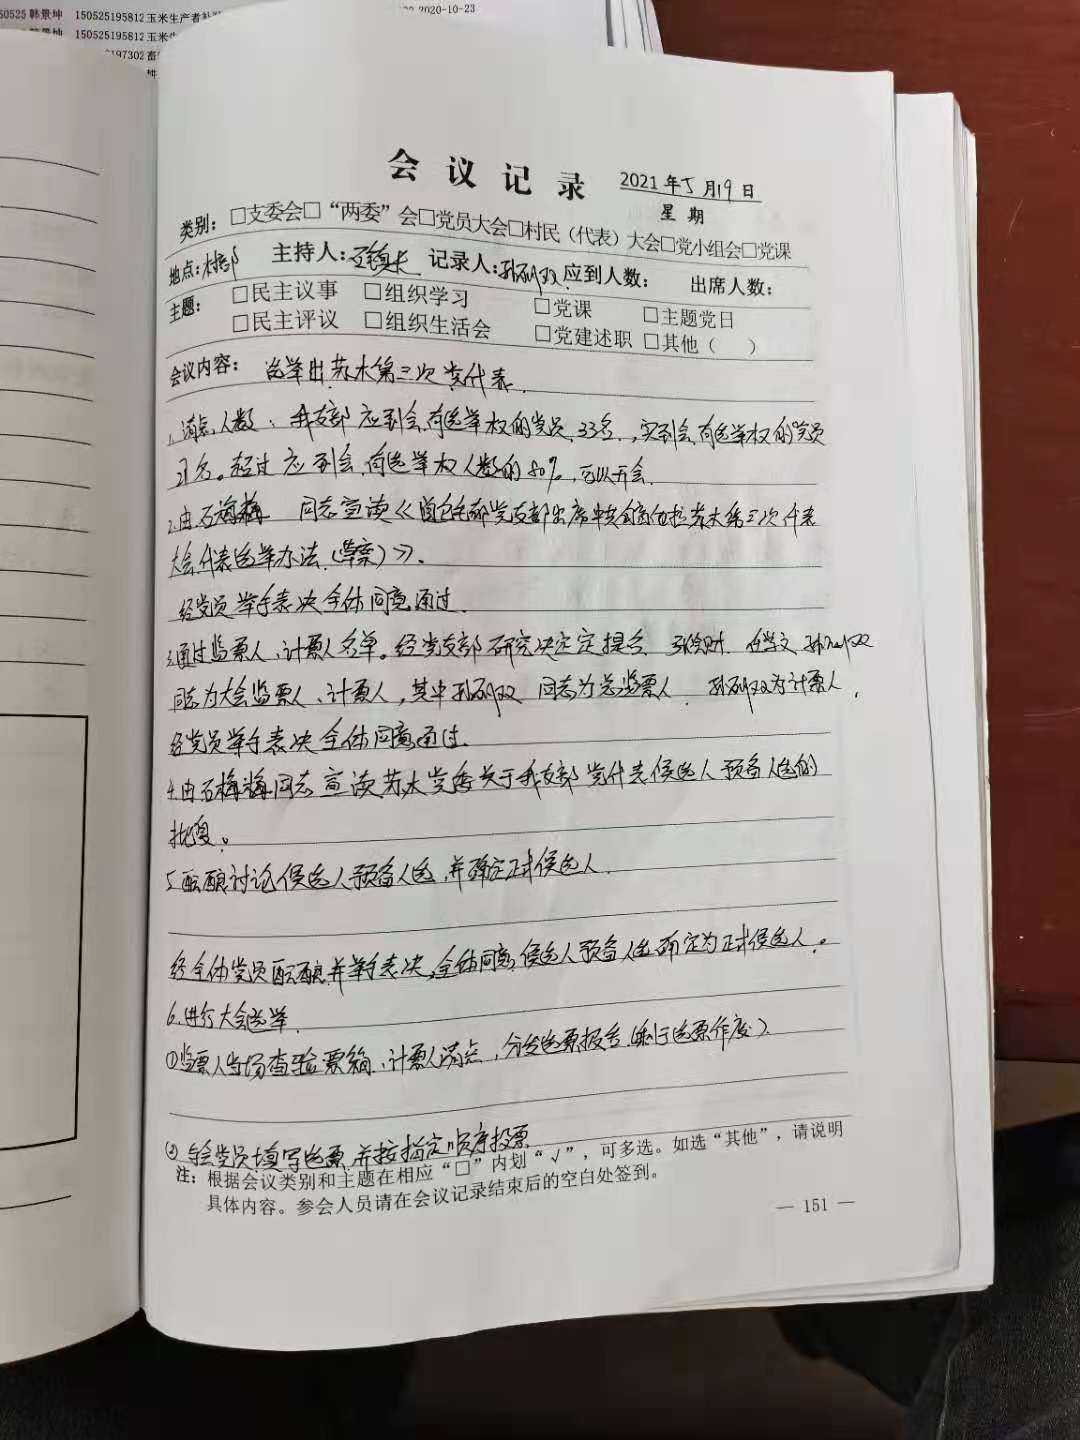 50525 韩景坤 150525195812 玉米生产者补
2020-10-23
150525195812 玉米生
197302 畜
会议记录
2021年5月19日
星期
类别：□支委会□“两委”会□党员大会□村民（代表）大会□党小组会□党课
地点：村部 主持人： 记录人： 应到人数： 出席人数：
主题： □民主议事 □组织学习 □党课 □主题党日
□民主评议 □组织生活会 □党建述职 □其他（ ）
会议内容： 选举出苏木第三次党代表.
1.清点人数：我支部应到会有选举权的党员33名,实到会有选举权的党员
名。超过应到会有选举权人数的80%,可以开会.
2.由石梅梅 同志宣读《 党支部出席中共 苏木第三次代表
大会代表选举办法（草案）》.
经党员举手表决全体同意通过.
3.通过监票人、计票人名单。经党支部研究决定提名
同志为大会监票人、计票人,其中 同志为总监票人 为计票人.
经党员举手表决全体同意通过.
4.由石梅梅同志宣读苏木党委关于我支部党代表候选人预备人选的
批复。
5.酝酿讨论候选人预备人选,并确定正式候选人.
经全体党员酝酿并举手表决,全体同意候选人预备人选确定为正式候选人。
6.进行大会选举.
①监票人当场查验票箱、计票人清点,分发选票报告(剩于选票作废).
②与会党员填写选票,并按指定顺序投票
注：根据会议类别和主题在相应“□”内划“√”，可多选。如选“其他”，请说明
具体内容。参会人员请在会议记录结束后的空白处签到。
— 151 —